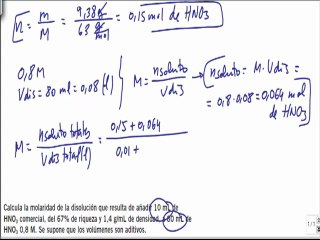 n = m/M = 9,38 g / 63 g/mol = 0,15 mol de HNO3
0,8 M
Vdis = 80 ml = 0,08 (l)
M = nsoluto / Vdis
nsoluto = M · Vdis =
= 0,8 · 0,08 = 0,064 mol
de HNO3
M = nsoluto totales / Vdis total (l) = 0,15 + 0,064 / 0,01 +
Calcula la molaridad de la disolución que resulta de añadir 10 mL de
HNO₃ comercial, del 67% de riqueza y 1,4 g/mL de densidad, a 80 mL de
HNO₃ 0,8 M. Se supone que los volúmenes son aditivos.
1/1